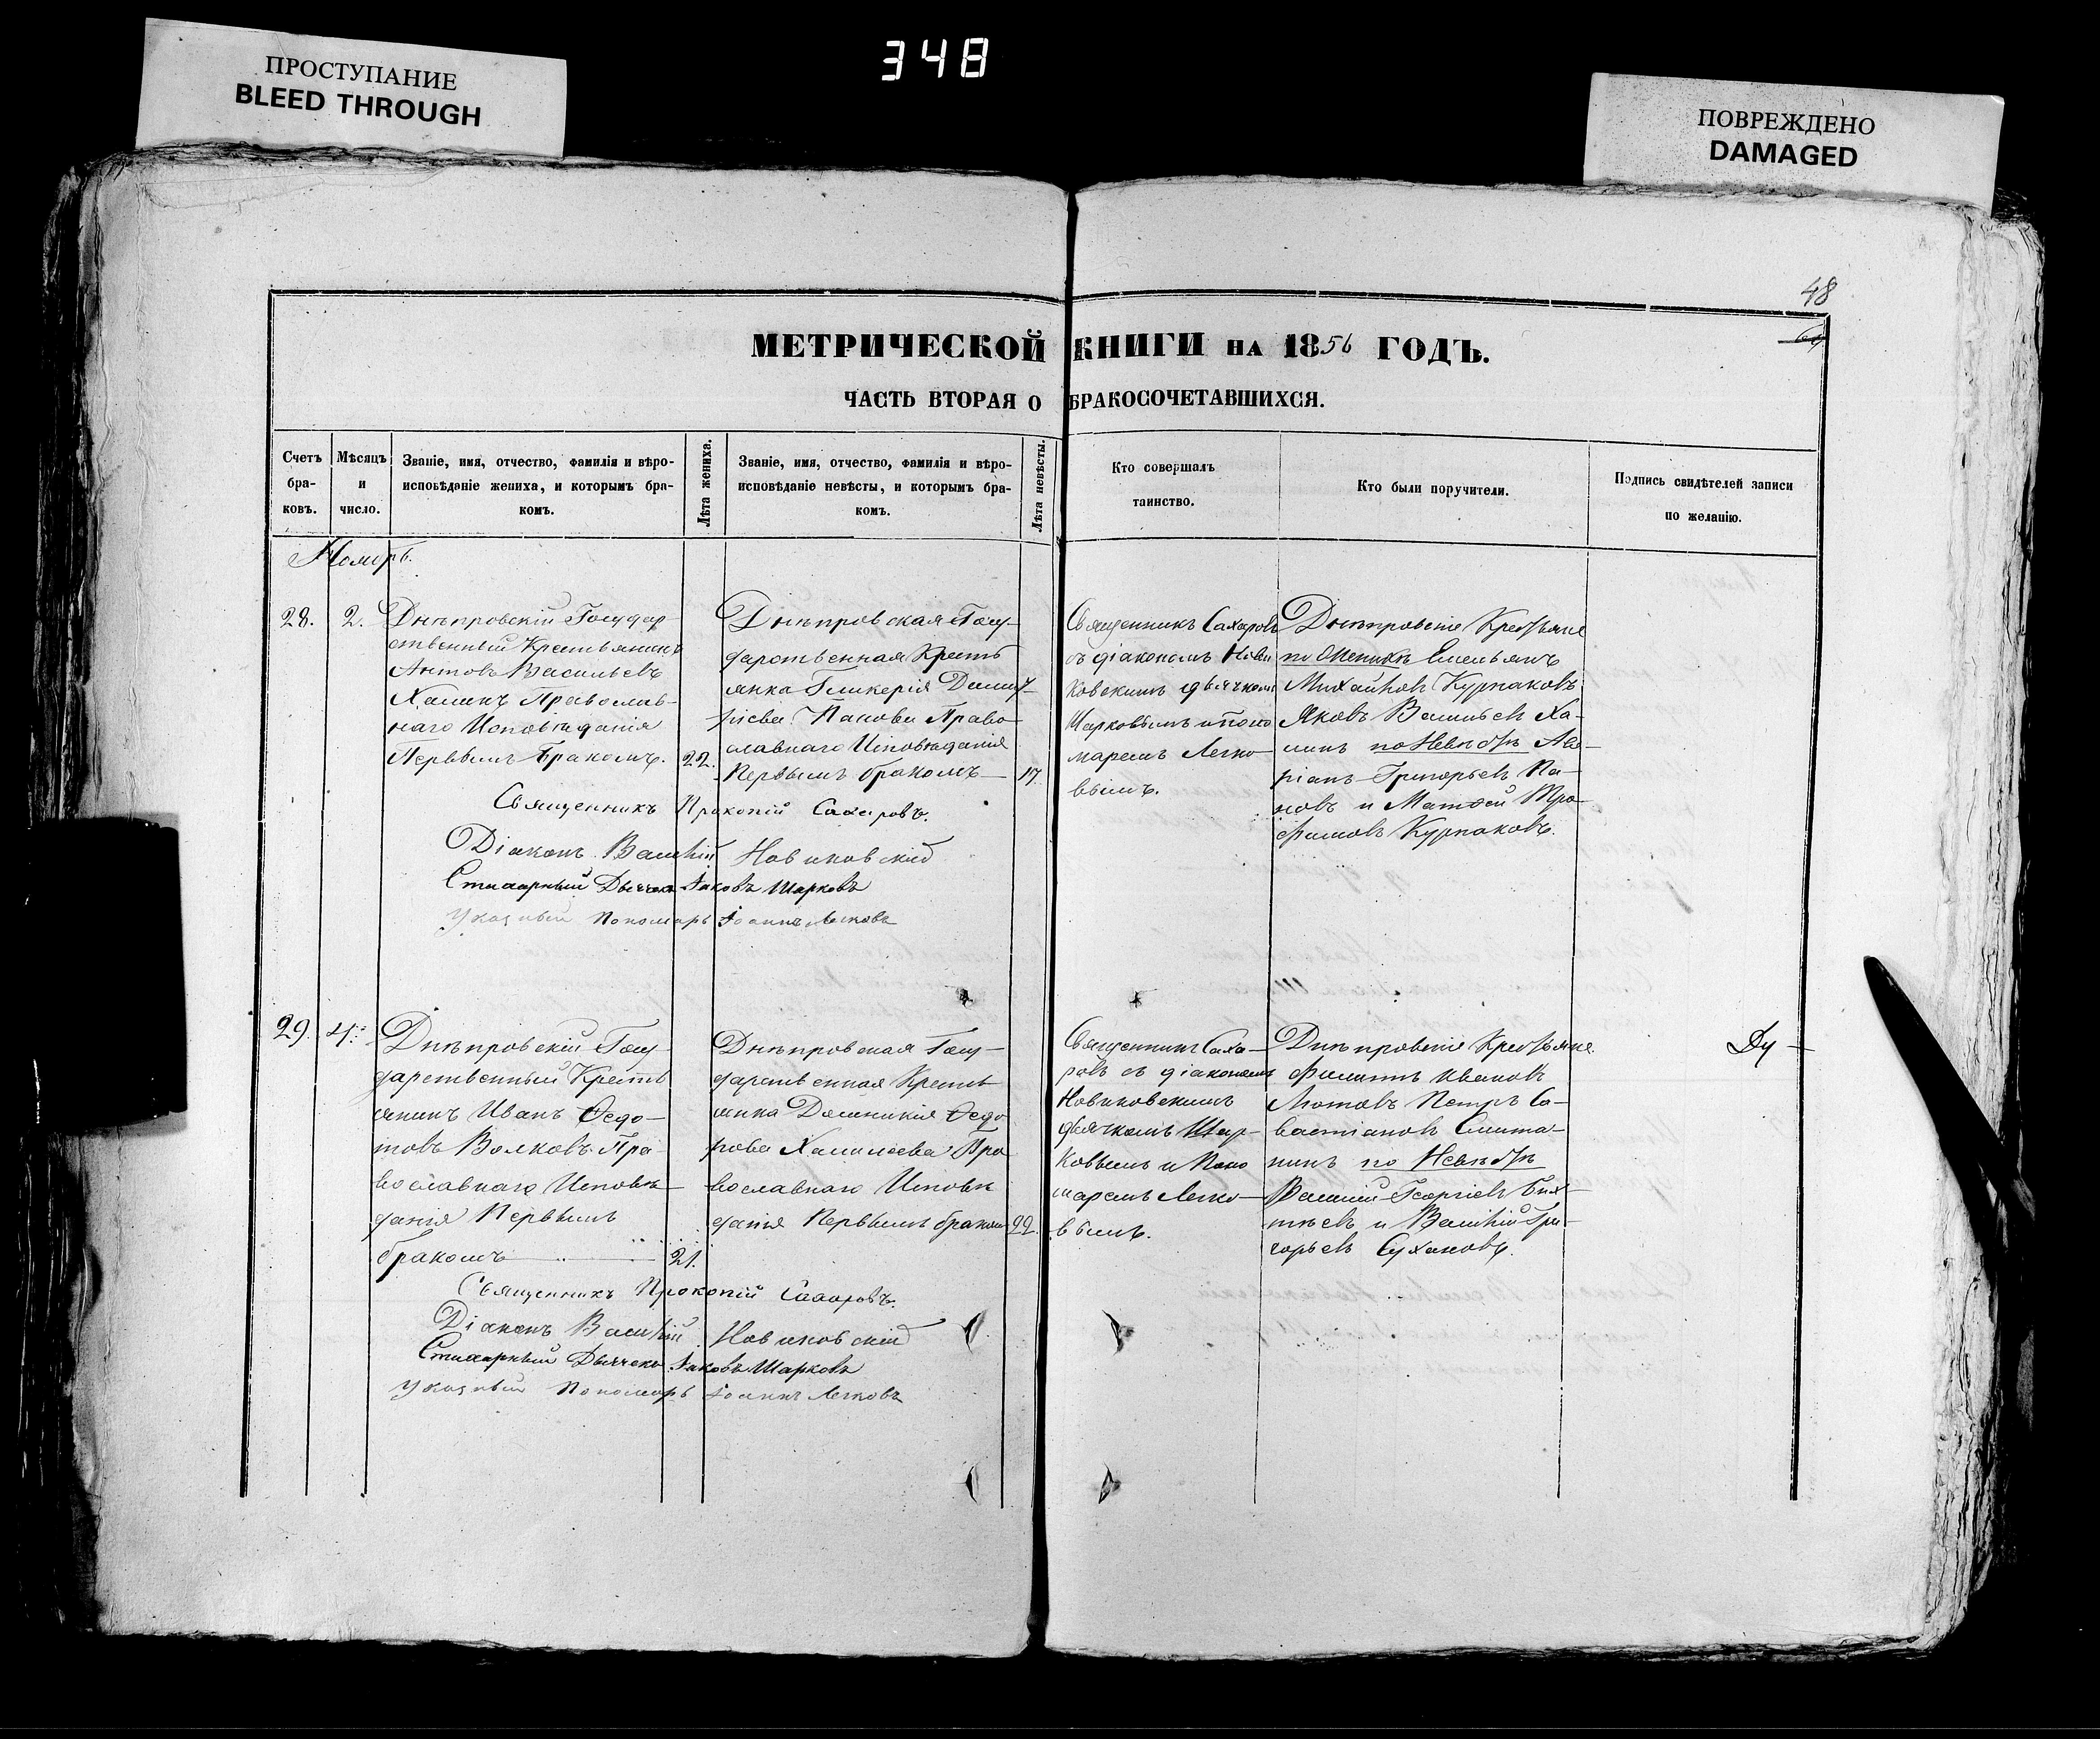 348
ПРОСТУПАНИЕ
BLEED THROUGH
ПОВРЕЖДЕНО
DAMAGED
48
МЕТРИЧЕСКОЙ КНИГИ НА 1856 ГОДЪ.
ЧАСТЬ ВТОРАЯ О БРАКОСОЧЕТАВШИХСЯ.
Счетъ
бра-
ковъ.
Мѣсяцъ
и
число.
Званіе, имя, отчество, фамилія и вѣро-
исповѣданіе жениха, и которымъ бра-
комъ.
Лѣта жениха.
Званіе, имя, отчество, фамилія и вѣро-
исповѣданіе невѣсты, и которымъ бра-
комъ.
Лѣта невѣсты.
Кто совершалъ
таинство.
Кто были поручители.
Подпись свидѣтелей записи
по желанію.
28.
2.
Днѣпровскій Государ-
ственный Крестьянинъ
Антонъ Васильевъ
Халинъ Православ-
наго Исповѣданія
Первымъ бракомъ.
22.
Днѣпровская Госу-
дарственная Кресть
янка Гликерія Димит-
ріева Панова Право-
славнаго Исповѣданія
Первымъ бракомъ
17.
Священникъ Сахаровъ
съ діакономъ Нови
ковскимъ дьячкомъ
Шарковымъ и поно
маремъ Легко-
вымъ.
Днѣпровскіе Крестьяне
по Женихѣ Емельянъ
Михайловъ Курпаковъ
Яковъ Васильевъ Ха-
линъ по Невѣстѣ Ава-
ріанъ Григорьевъ Па-
новъ и Матѳей Тро-
фимовъ Курпаковъ.
Священникъ Прокопій Сахаровъ.
Діаконъ Василій Новиковскій
Стихарный Дьячекъ Іаковъ Шарковъ
Указный Пономарь Іоаннъ Легковъ
29.
4.
Днѣпровскій Госу-
дарственный Кресть
янинъ Иванъ Ѳедо-
товъ Волковъ Пра-
вославнаго Исповѣ-
данія Первымъ
бракомъ
21.
Днѣпровская Госу-
дарственная Кресть
янка Домникія Ѳедо
рова Халилеева Пра
вославнаго Исповѣ
данія Первымъ бракомъ
22.
Священникъ Саха-
ровъ съ діакономъ
Новиковскимъ
дьячкомъ Шар-
ковымъ и Поно
маремъ Легко-
вымъ.
Днѣпровскіе Крестьяне
Филиппъ Ивановъ
Лютовъ Петръ Са-
вастіановъ
по Невѣстѣ
Василій Георгіевъ
и Василій Гри-
горьевъ Сухановъ.
Священникъ Прокопій Сахаровъ.
Діаконъ Василій Новиковскій
Стихарный Дьячекъ Іаковъ Шарковъ
Указный Пономарь Іоаннъ Легковъ